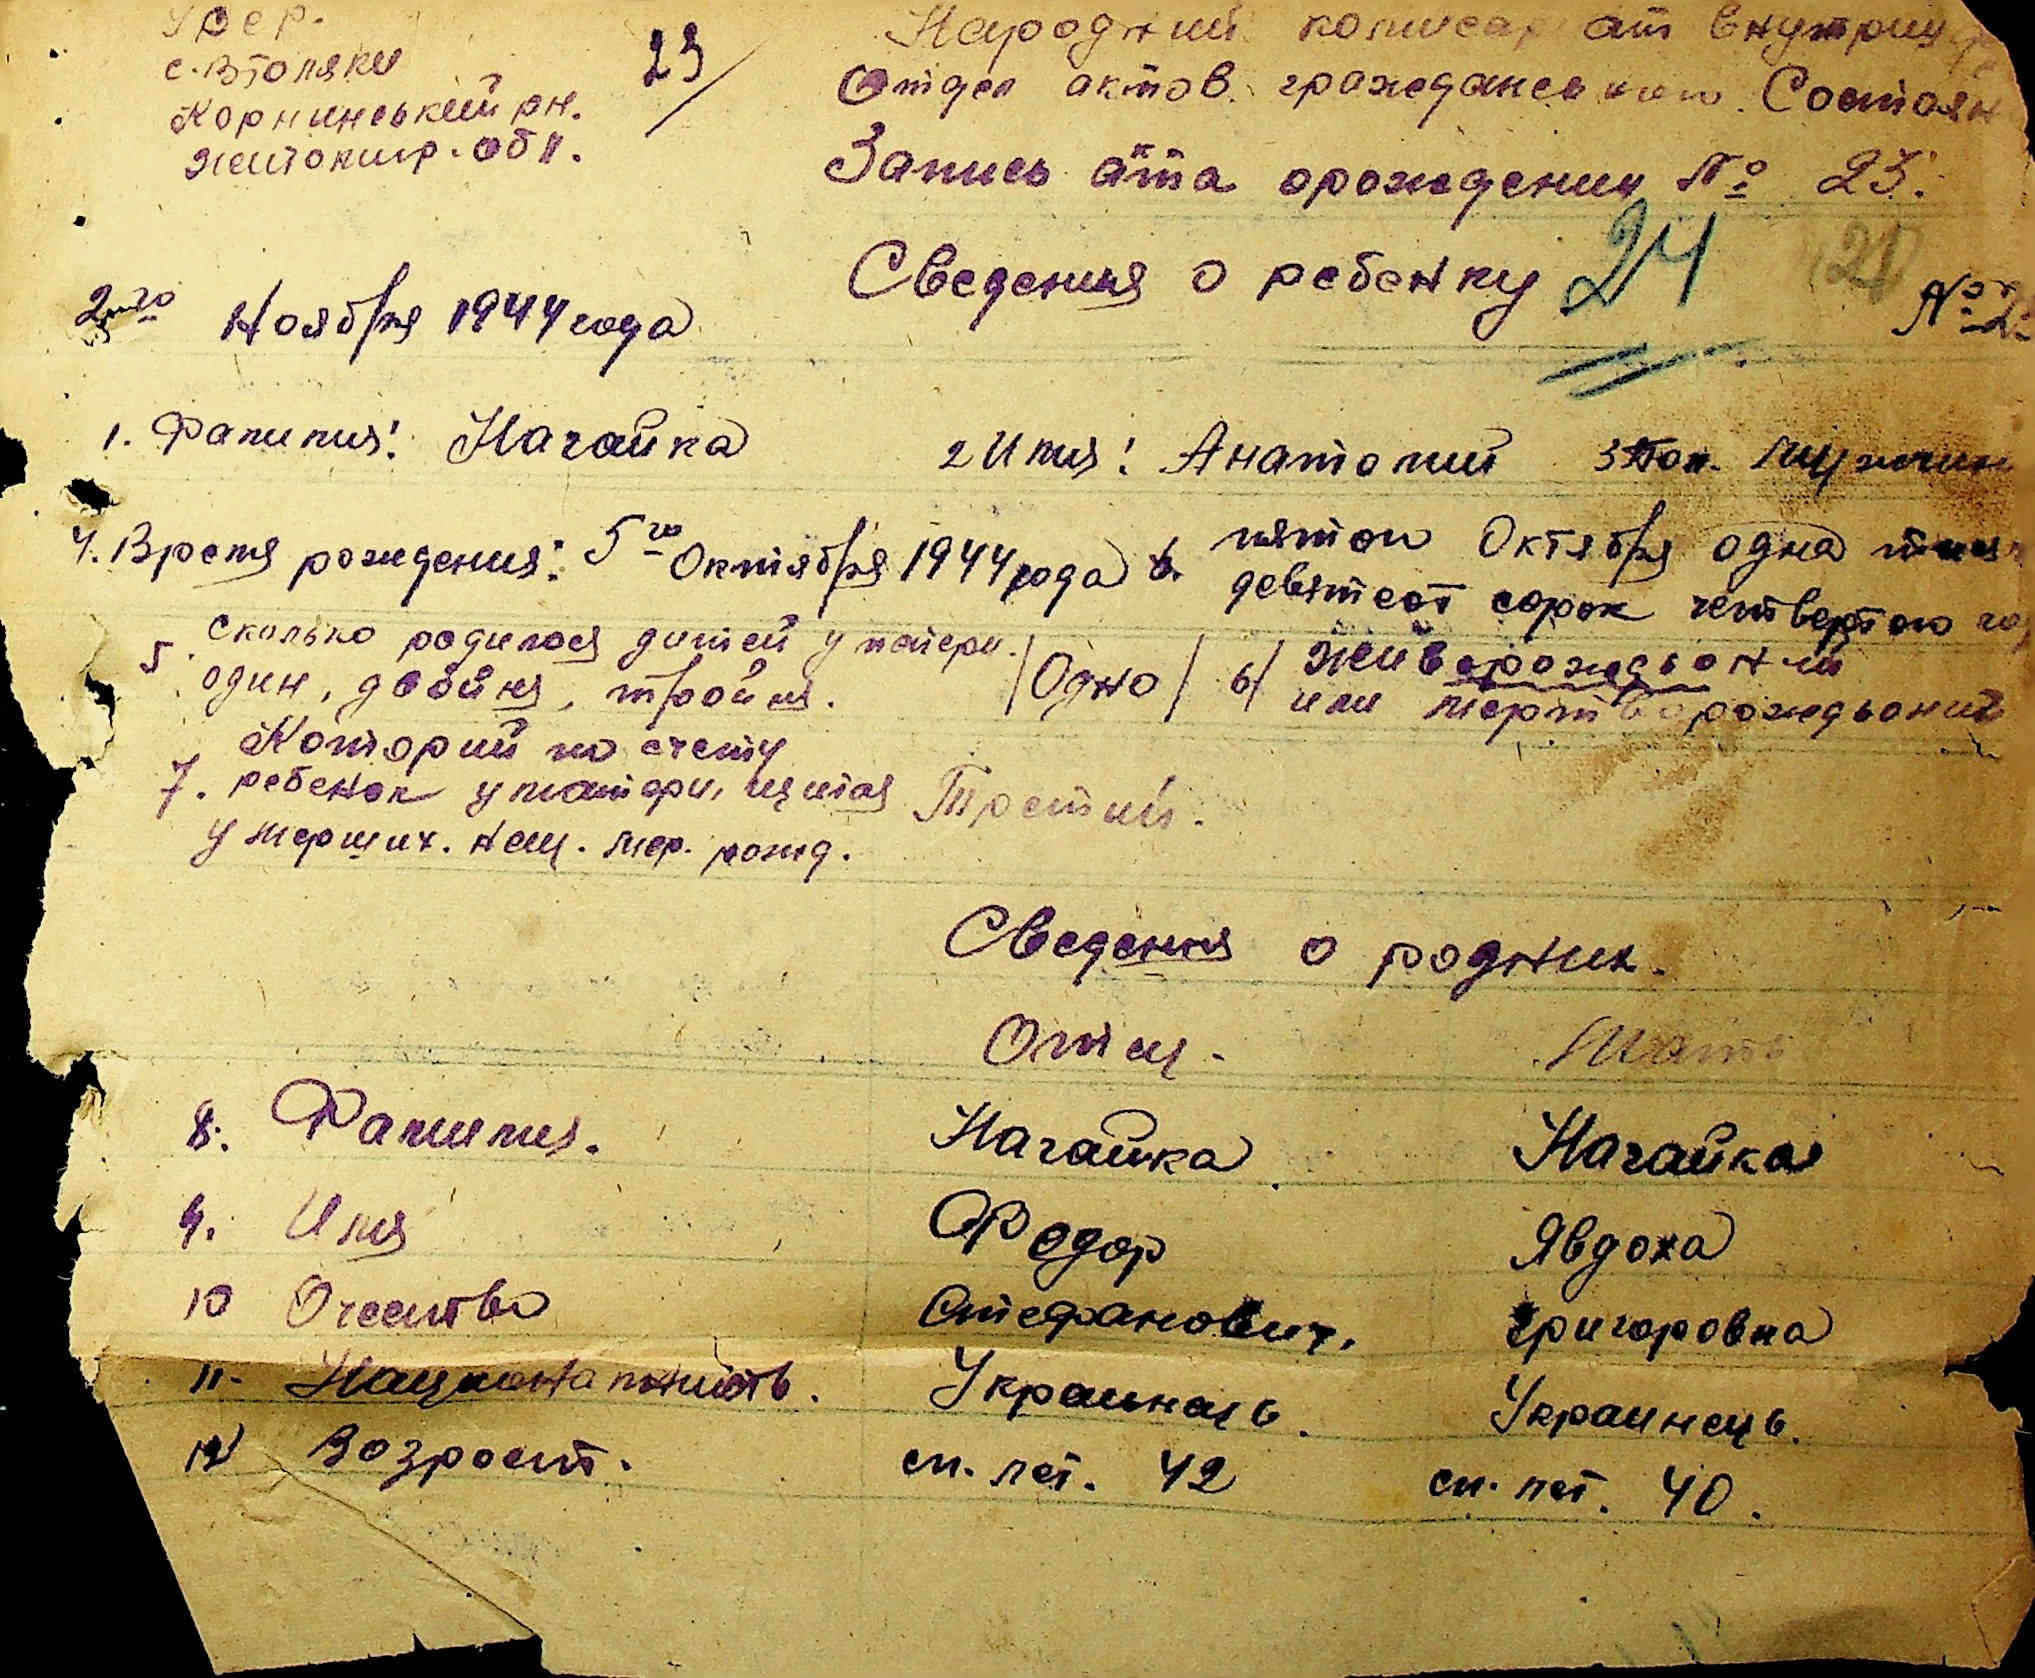 УРСР.
с. Втоляки
Корнинський рн.
житомир. обл.
23
Народний комисариат внутрин
Отдел актов гражданського Состоян
Запись акта орождении № 23.
Сведения о ребенку 24 21
№ 23
2го Ноября 1944 года
1. Фамилия: Нагайка 2 Имя: Анатолий 3 Пол. мужчин
4. Время рождения: 5го Октября 1944 года пятого Октября одна тися
девятсот сорок четвертого го
5. сколько родилося дитей у матери.
один, двойня, тройня. Одно
6 живорождьонни
или мертворождьоний
Который по счету
7. ребенок у матери, щитая Третий.
умерших. нещ. мер. рожд.
Сведения о родних.
Отец. Мать
8. Фамилия. Нагайка Нагайка
9. Имя Федор Явдоха
10 Отчество Стефанович. Григоровна
11. Национальность. Украинець. Украинець.
12 Возрост. сп. лет. 42 сп. лет. 40.